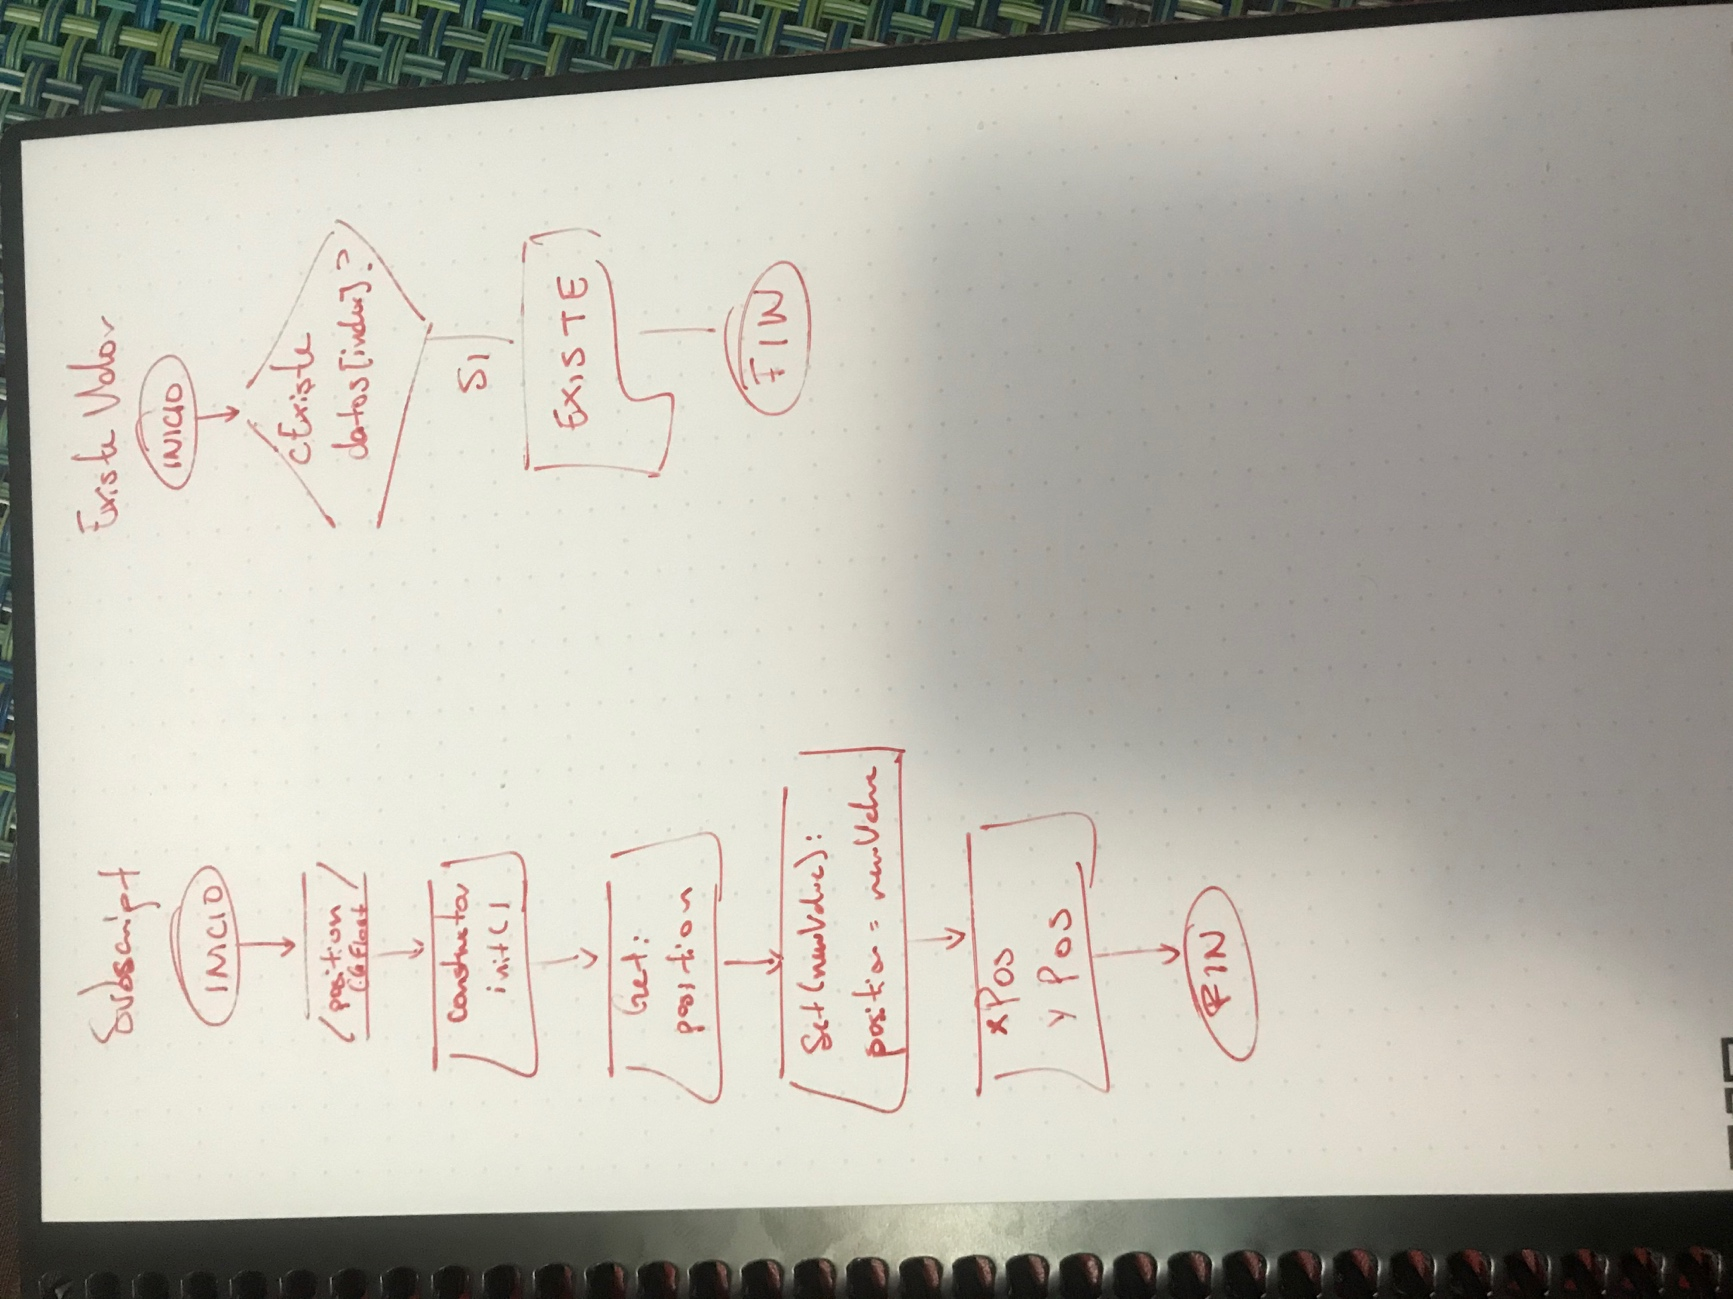 Subscript
INICIO
position
CGFloat
Constructor
init()
Get:
position
Set(newValue):
position = newValue
xPos
yPos
FIN
Existe Valor
INICIO
¿Existe
datos[index]?
SI
EXISTE
FIN